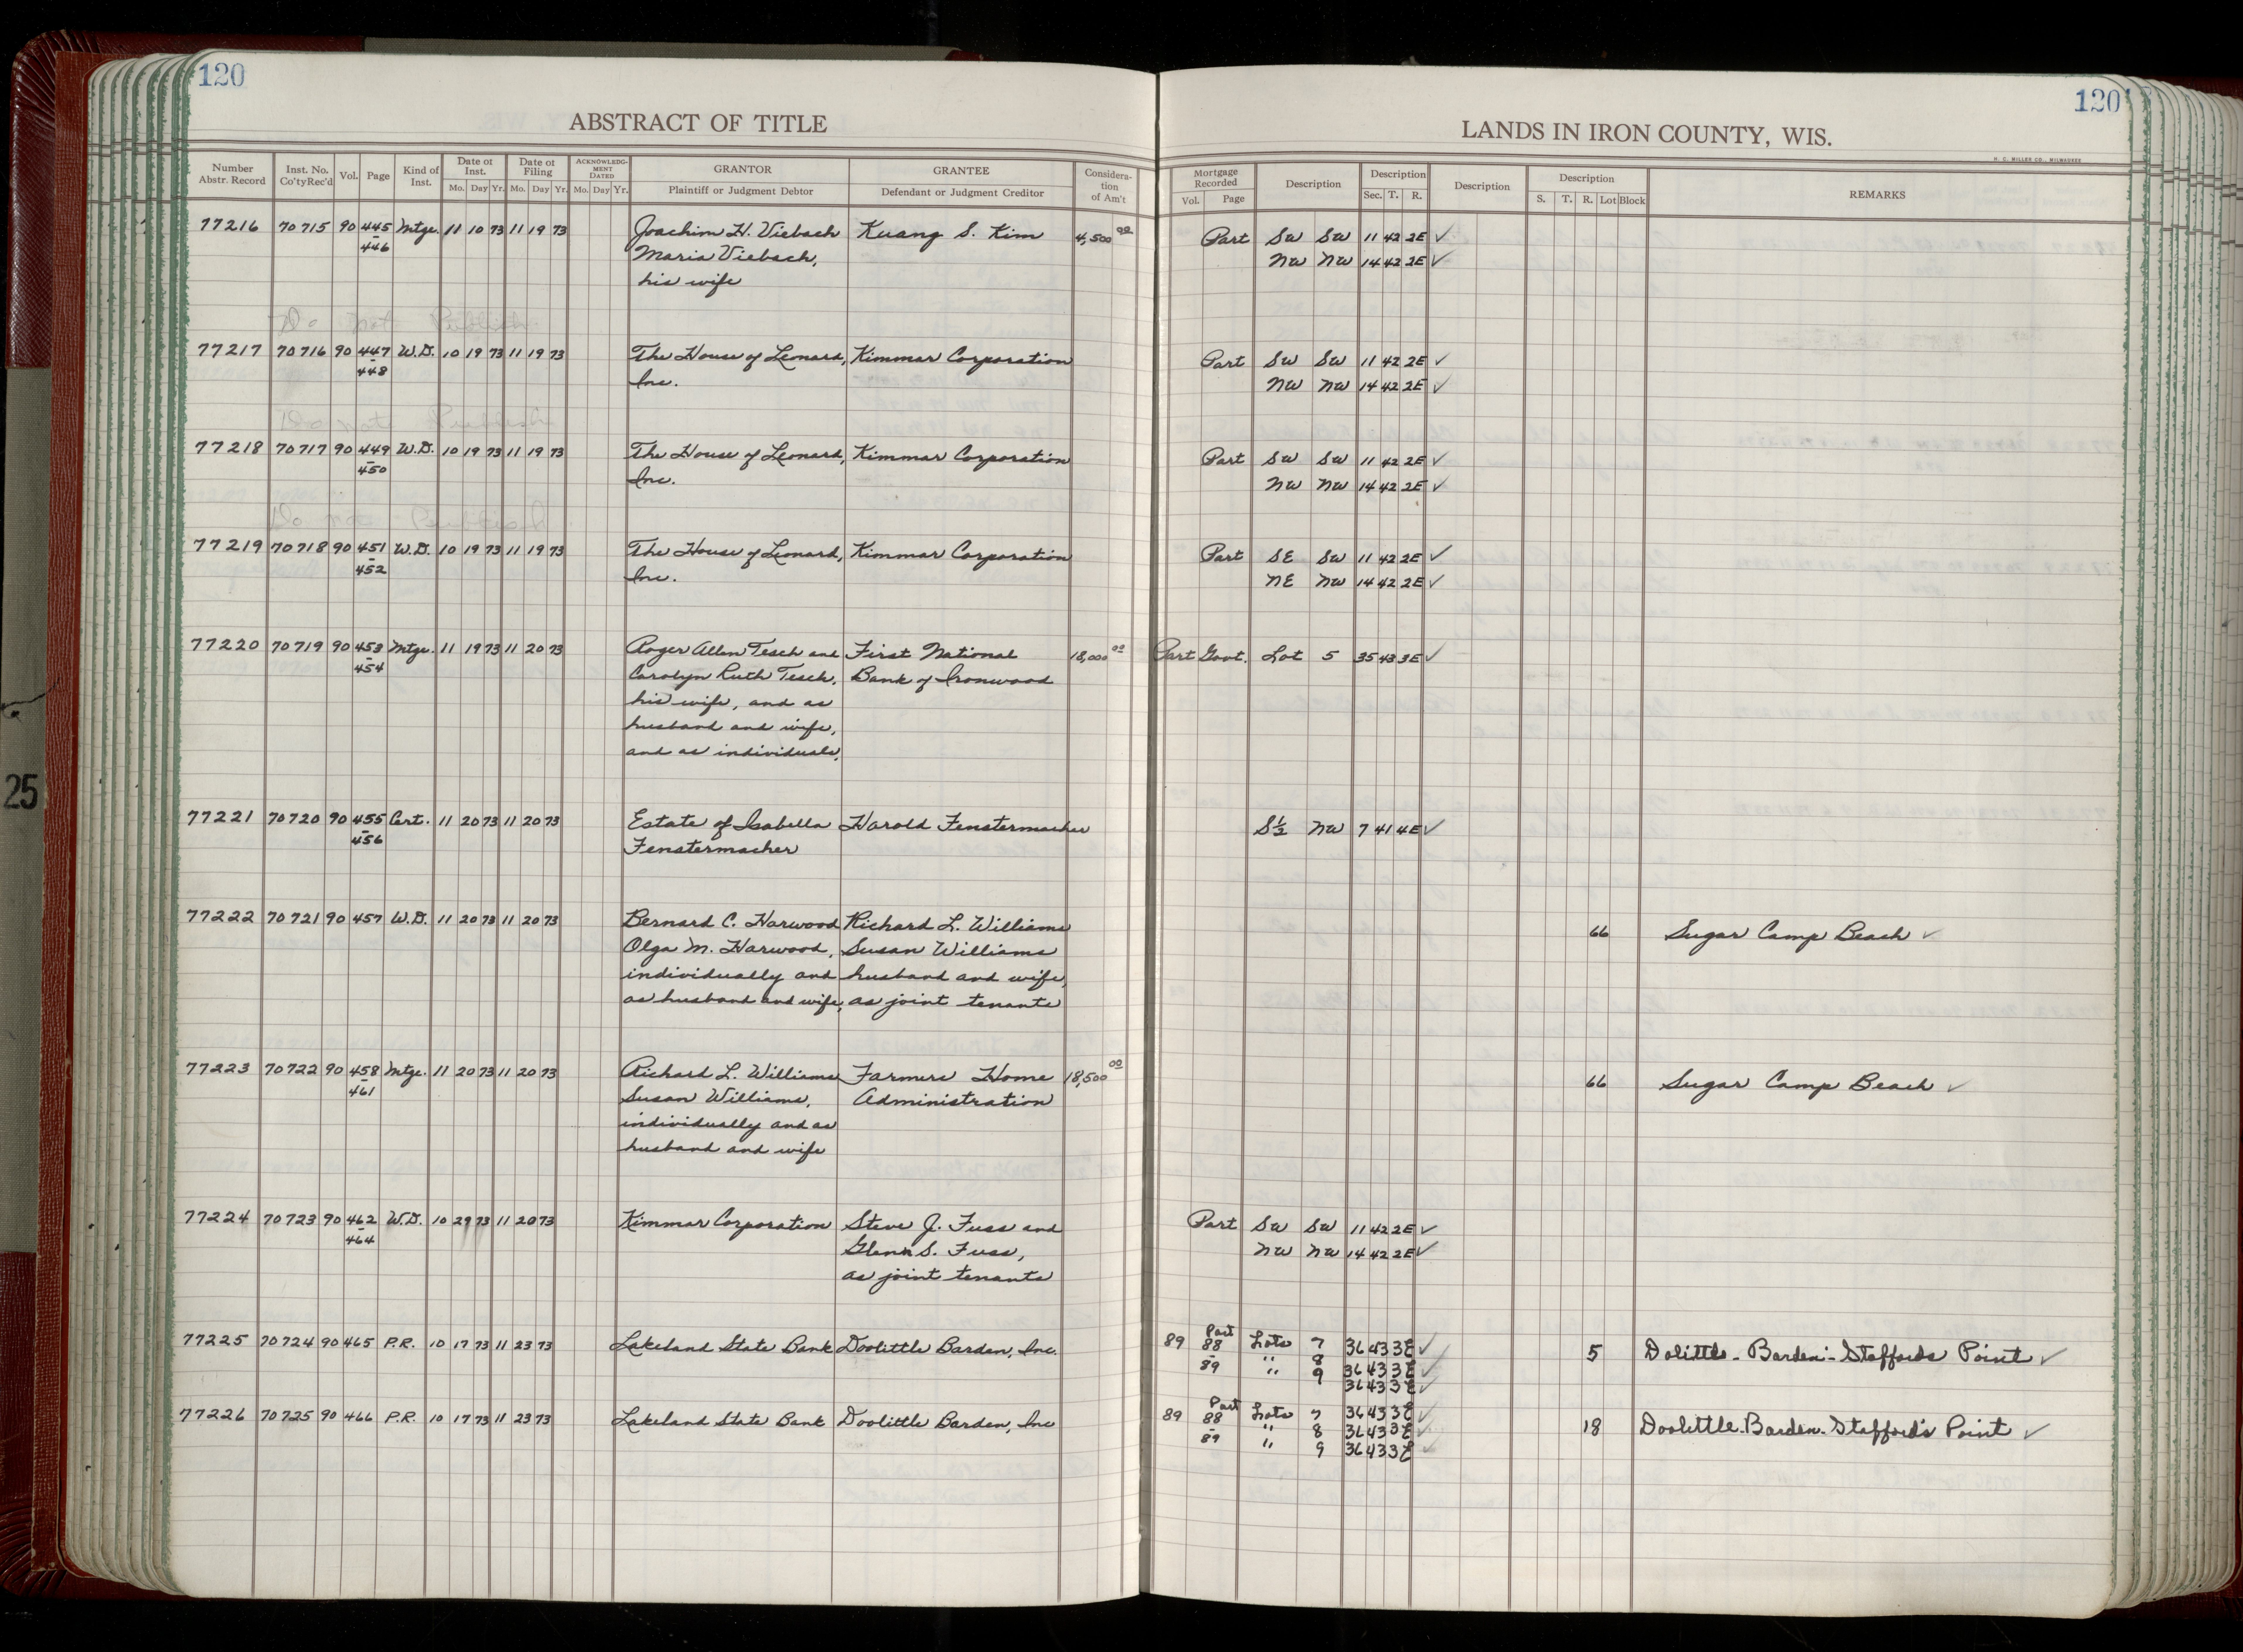 120
120
ABSTRACT OF TITLE
LANDS IN IRON COUNTY, WIS.
H. C. MILLER CO., MILWAUKEE
Number Abstr. Record | Inst. No. Co'tyRec'd | Vol. | Page | Kind of Inst. | Date of Inst. Mo. Day Yr. | Date of Filing Mo. Day Yr. | ACKNOWLEDG-MENT DATED Mo. Day Yr. | GRANTOR Plaintiff or Judgment Debtor | GRANTEE Defendant or Judgment Creditor | Considera-tion of Am't | Mortgage Recorded Vol. Page | Description | Description Sec. T. R. | Description | Description S. T. R. Lot Block | REMARKS
77216 70715 90 445 Mtge. 11 10 73 11 19 73 Joachim H. Viebach Kuang S. Kim 4,500 00 Part SW SW 11 42 2E ✓
446 Maria Viebach, NW NW 14 42 2E ✓
his wife
Do not Publish
77217 70716 90 447 W.D. 10 19 73 11 19 73 The House of Leonard, Kimmar Corporation Part SW SW 11 42 2E ✓
448 Inc. NW NW 14 42 2E ✓
Do not Publish
77218 70717 90 449 W.D. 10 19 73 11 19 73 The House of Leonard, Kimmar Corporation Part SW SW 11 42 2E ✓
450 Inc. NW NW 14 42 2E ✓
Do not Publish
77219 70718 90 451 W.D. 10 19 73 11 19 73 The House of Leonard, Kimmar Corporation Part SE SW 11 42 2E ✓
452 Inc. NE NW 14 42 2E ✓
77220 70719 90 453 Mtge. 11 19 73 11 20 73 Roger Allen Tesch and First National 18,000 00 Part Govt. Lot 5 35 43 3E ✓
454 Carolyn Ruth Tesch, Bank of Ironwood
his wife, and as
husband and wife,
and as individuals,
25
77221 70720 90 455 Cert. 11 20 73 11 20 73 Estate of Isabella Harold Fenstermacher S½ NW 7 41 4E ✓
456 Fenstermacher
77222 70721 90 457 W.D. 11 20 73 11 20 73 Bernard C. Harwood Richard L. Williams 66 Sugar Camp Beach ✓
Olga M. Harwood, Susan Williams
individually and husband and wife,
as husband and wife, as joint tenants
77223 70722 90 458 Mtge. 11 20 73 11 20 73 Richard L. Williams Farmers Home 18,500 00 66 Sugar Camp Beach ✓
461 Susan Williams, Administration
individually and as
husband and wife
77224 70723 90 462 W.D. 10 29 73 11 20 73 Kimmar Corporation Steve J. Fuss and Part SW SW 11 42 2E ✓
464 Glenn S. Fuss, NW NW 14 42 2E ✓
as joint tenants
77225 70724 90 465 P.R. 10 17 73 11 23 73 Lakeland State Bank Doolittle Barden, Inc. 89 Part 88 Lots 7 36 43 3E ✓ 5 Dolittle-Barden-Staffords Point ✓
- " 8 36 43 3E ✓
89 " 9 36 43 3E ✓
77226 70725 90 466 P.R. 10 17 73 11 23 73 Lakeland State Bank Doolittle Barden, Inc 89 Part 88 Lots 7 36 43 3E ✓ 18 Doolittle-Barden-Stafford's Point ✓
- " 8 36 43 3E ✓
89 " 9 36 43 3E ✓